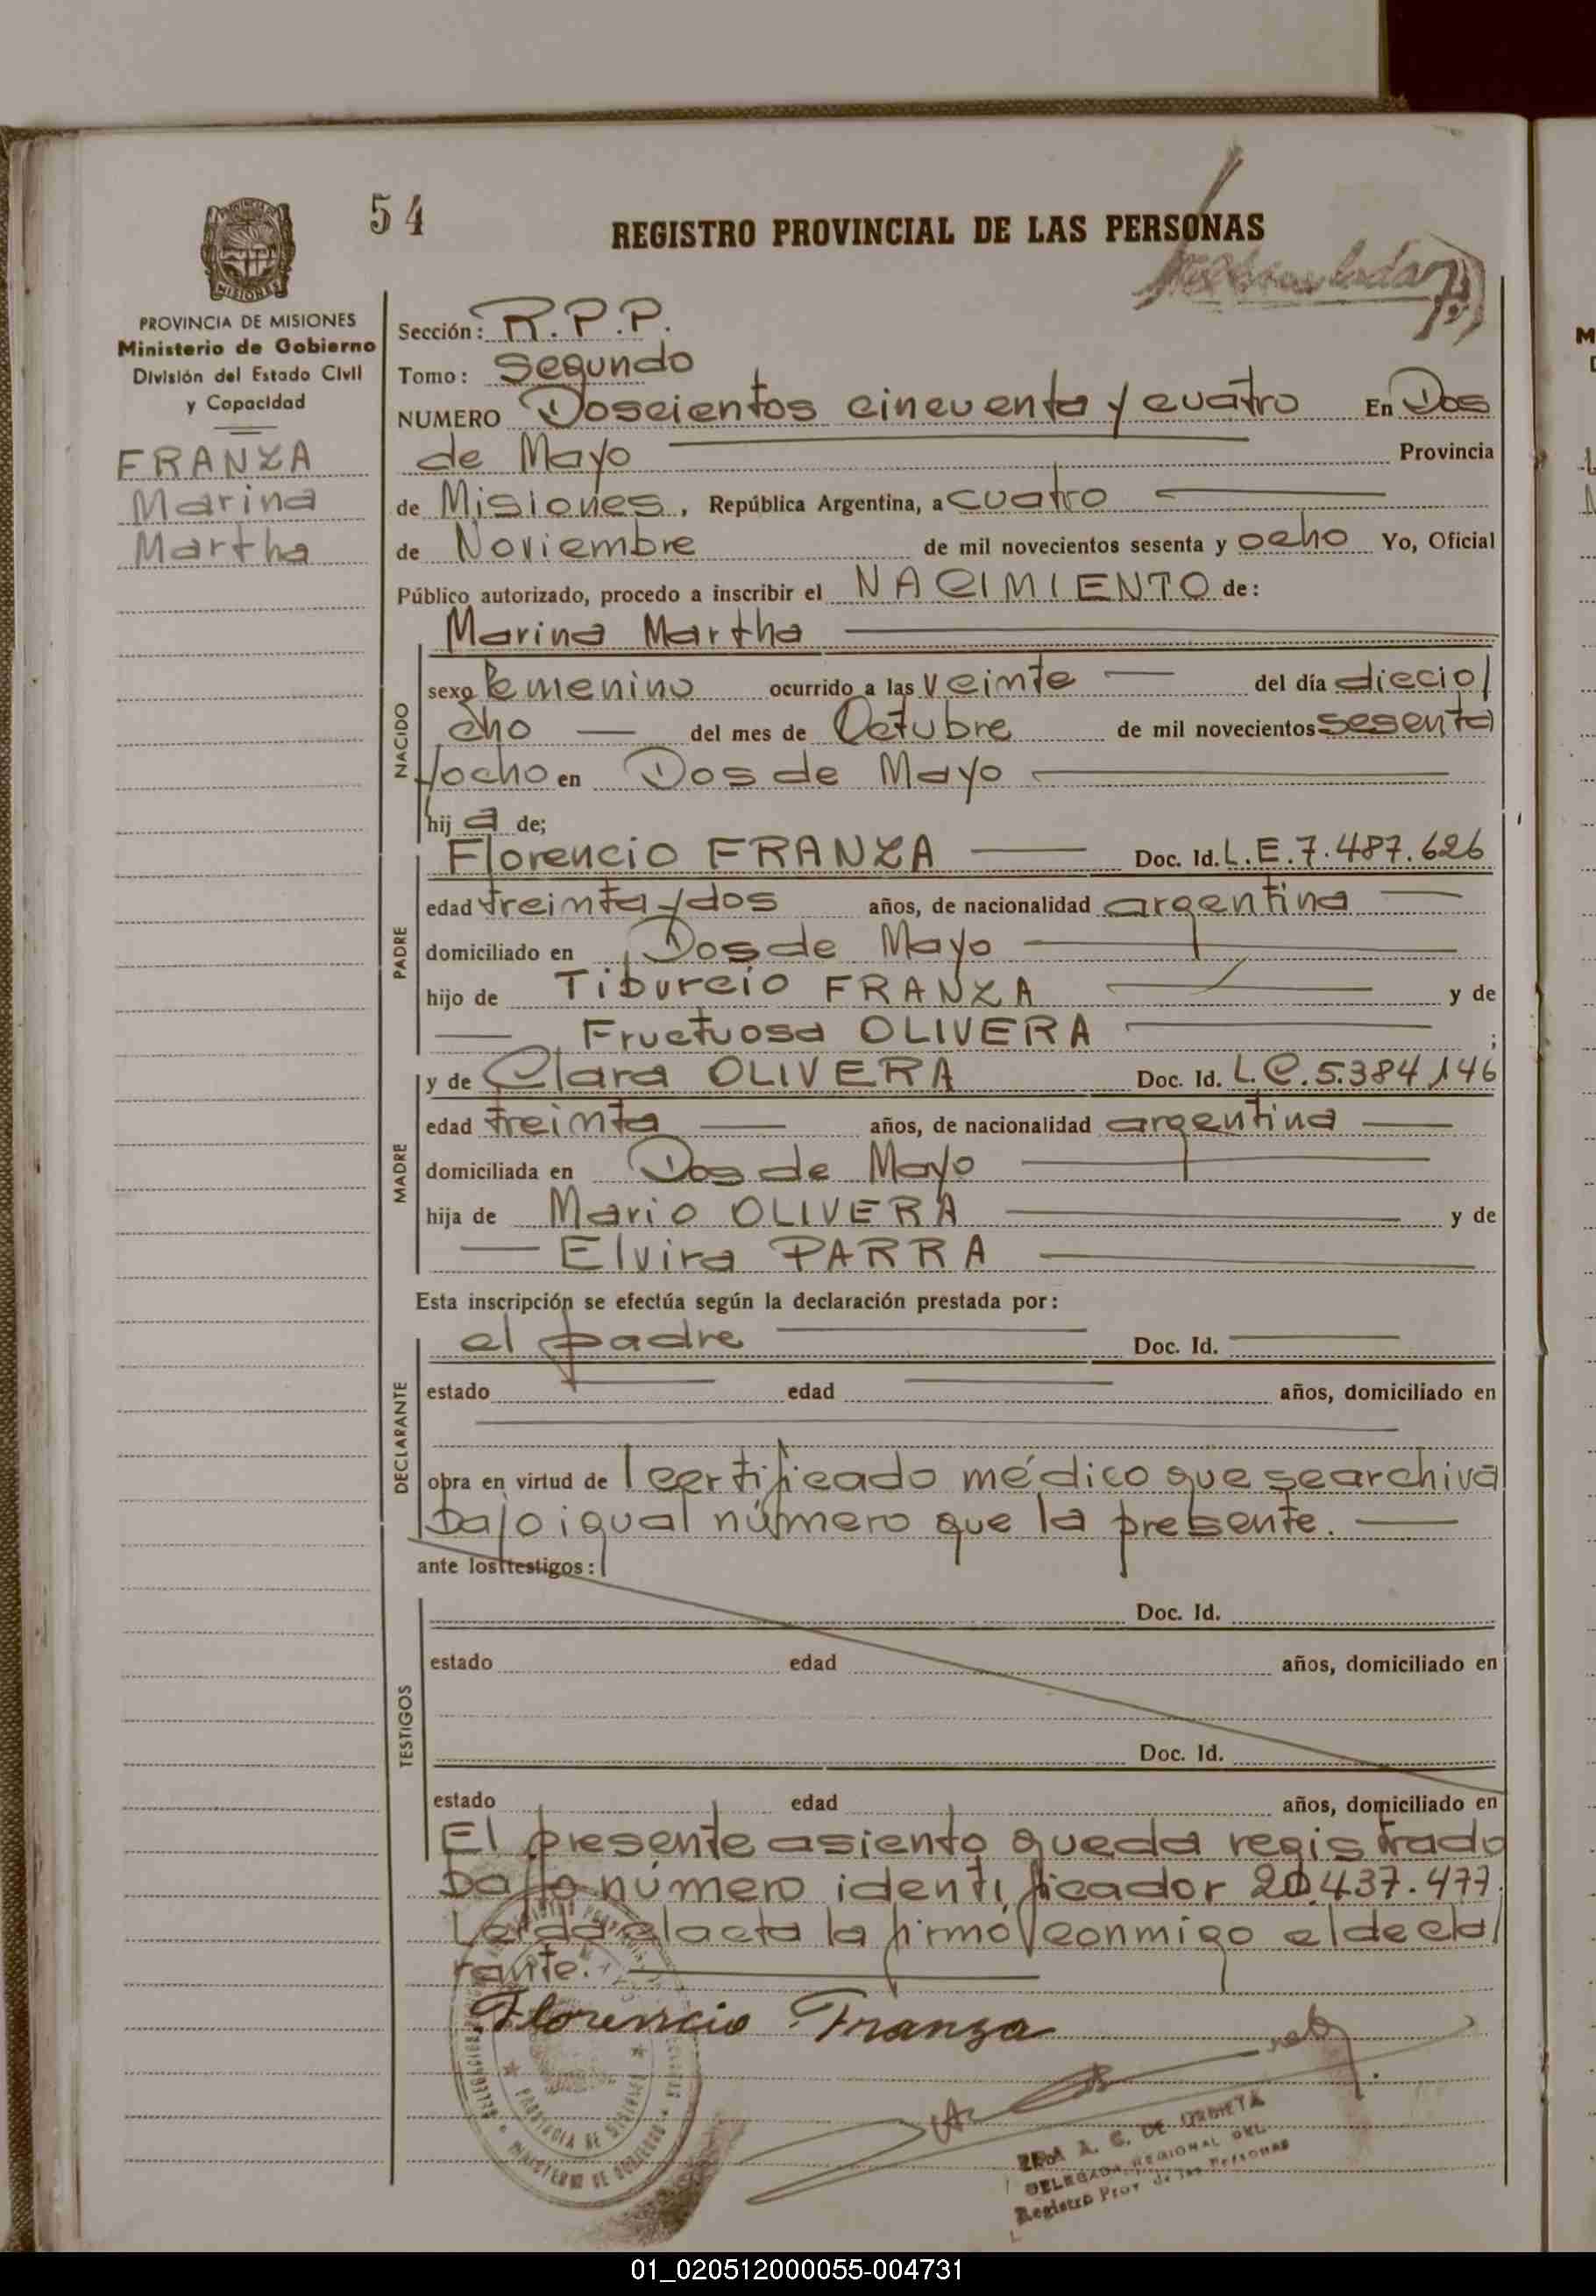 54
REGISTRO PROVINCIAL DE LAS PERSONAS
MISIONES
PROVINCIA DE MISIONES
Ministerio de Gobierno
División del Estado Civil
y Capacidad
FRANZA
Marina
Martha
Sección: R.P.P.
Tomo: Segundo
NUMERO Doscientos cincuenta y cuatro En Dos
de Mayo Provincia
de Misiones, República Argentina, a cuatro
de Noviembre de mil novecientos sesenta y ocho Yo, Oficial
Público autorizado, procedo a inscribir el NACIMIENTO de:
Marina Martha
NACIDO
sexo femenino ocurrido a las veinte del día diecio/
cho del mes de Octubre de mil novecientos sesenta
yocho en Dos de Mayo
hij a de;
Florencio FRANZA Doc. Id. L.E.7.487.626
PADRE
edad treinta y dos años, de nacionalidad argentina
domiciliado en Dos de Mayo
hijo de Tiburcio FRANZA y de
Fructuosa OLIVERA ;
y de Clara OLIVERA Doc. Id. L.C.5.384.146
MADRE
edad treinta años, de nacionalidad argentina
domiciliada en Dos de Mayo
hija de Mario OLIVERA y de
Elvira PARRA
Esta inscripción se efectúa según la declaración prestada por:
el padre Doc. Id.
DECLARANTE
estado edad años, domiciliado en
obra en virtud de l certificado médico que se archiva
bajo igual número que la presente.
ante los testigos:
Doc. Id.
TESTIGOS
estado edad años, domiciliado en
Doc. Id.
estado edad años, domiciliado en
El presente asiento queda registrado
bajo número identificador 20.437.477.
Leida el acta la firmó conmigo el decla/
rante.
Florencio Franza
PROVINCIA DE MISIONES
MINISTERIO DE GOBIERNO
A. C. DE URBIETA
DELEGADA REGIONAL DEL
Registro Prov. de las Personas
01_020512000055-004731